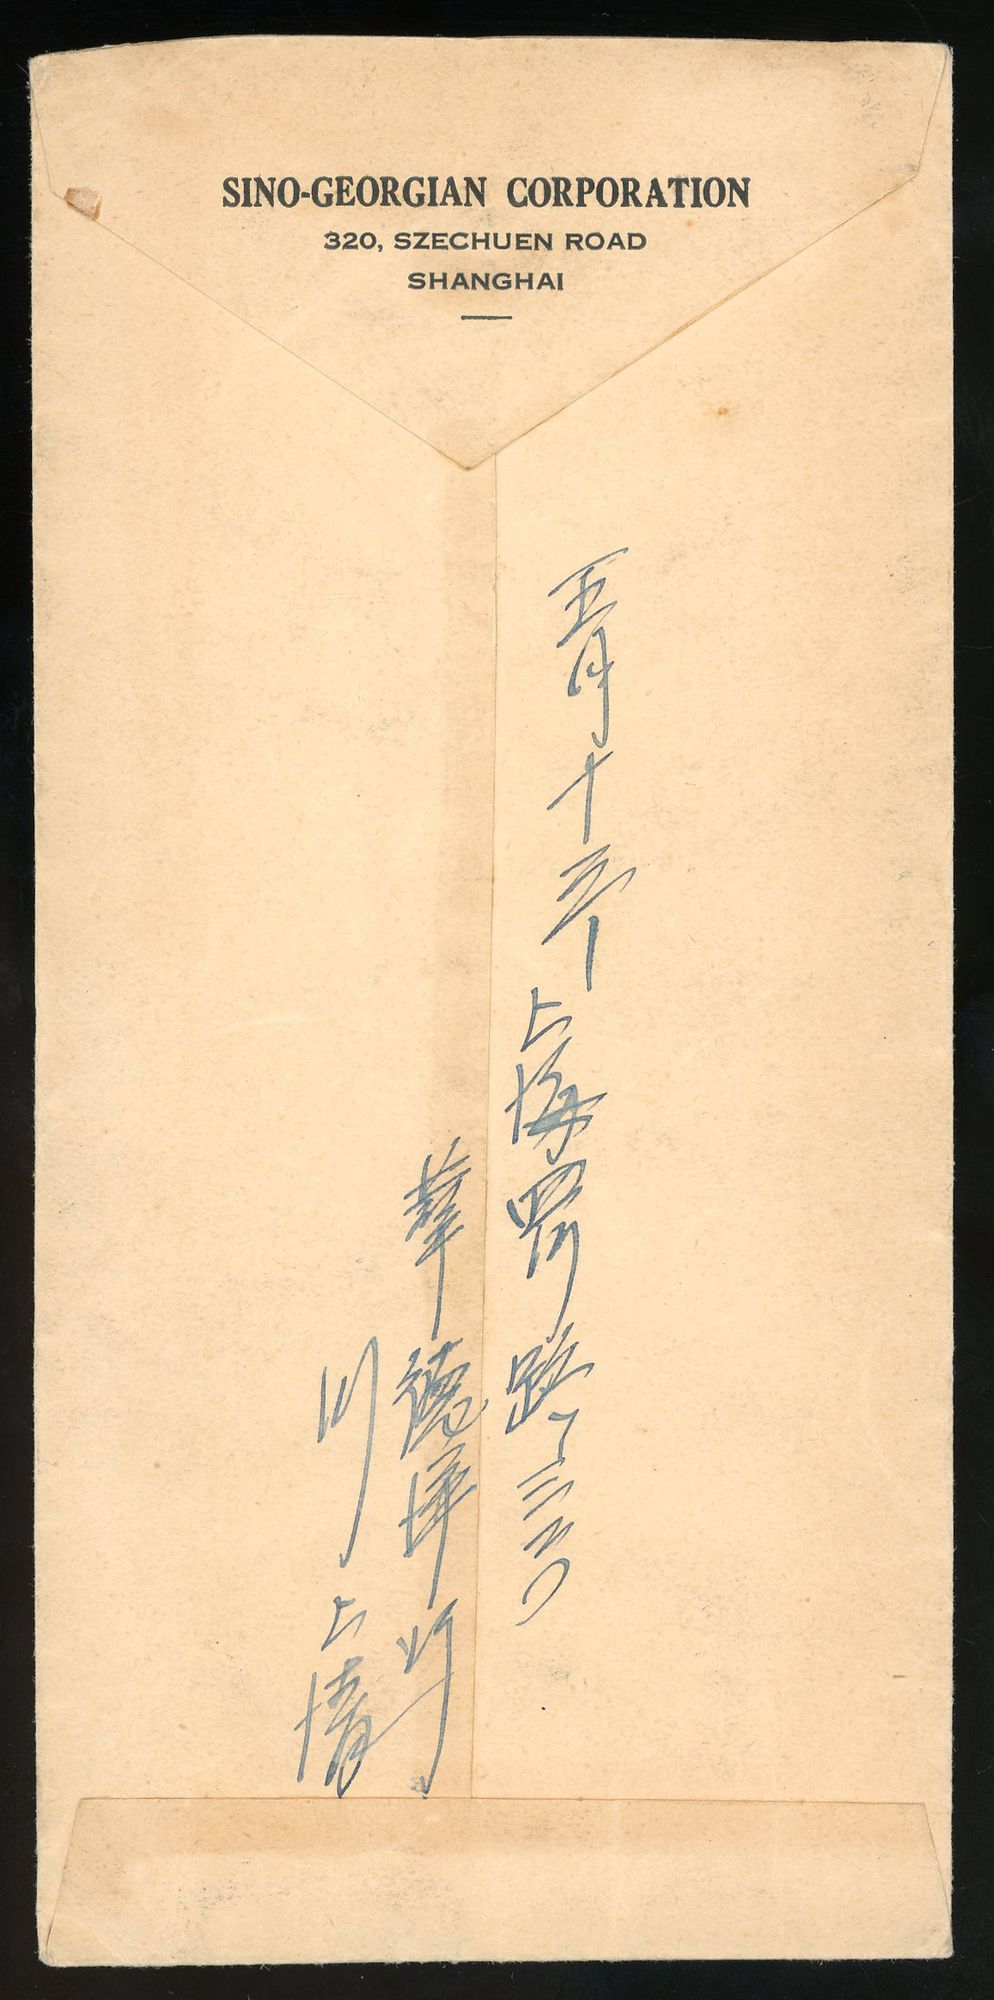 SINO-GEORGIAN CORPORATION
320, SZECHUEN ROAD
SHANGHAI
五月十五
上海四川路三二〇
華德洋行
川上清